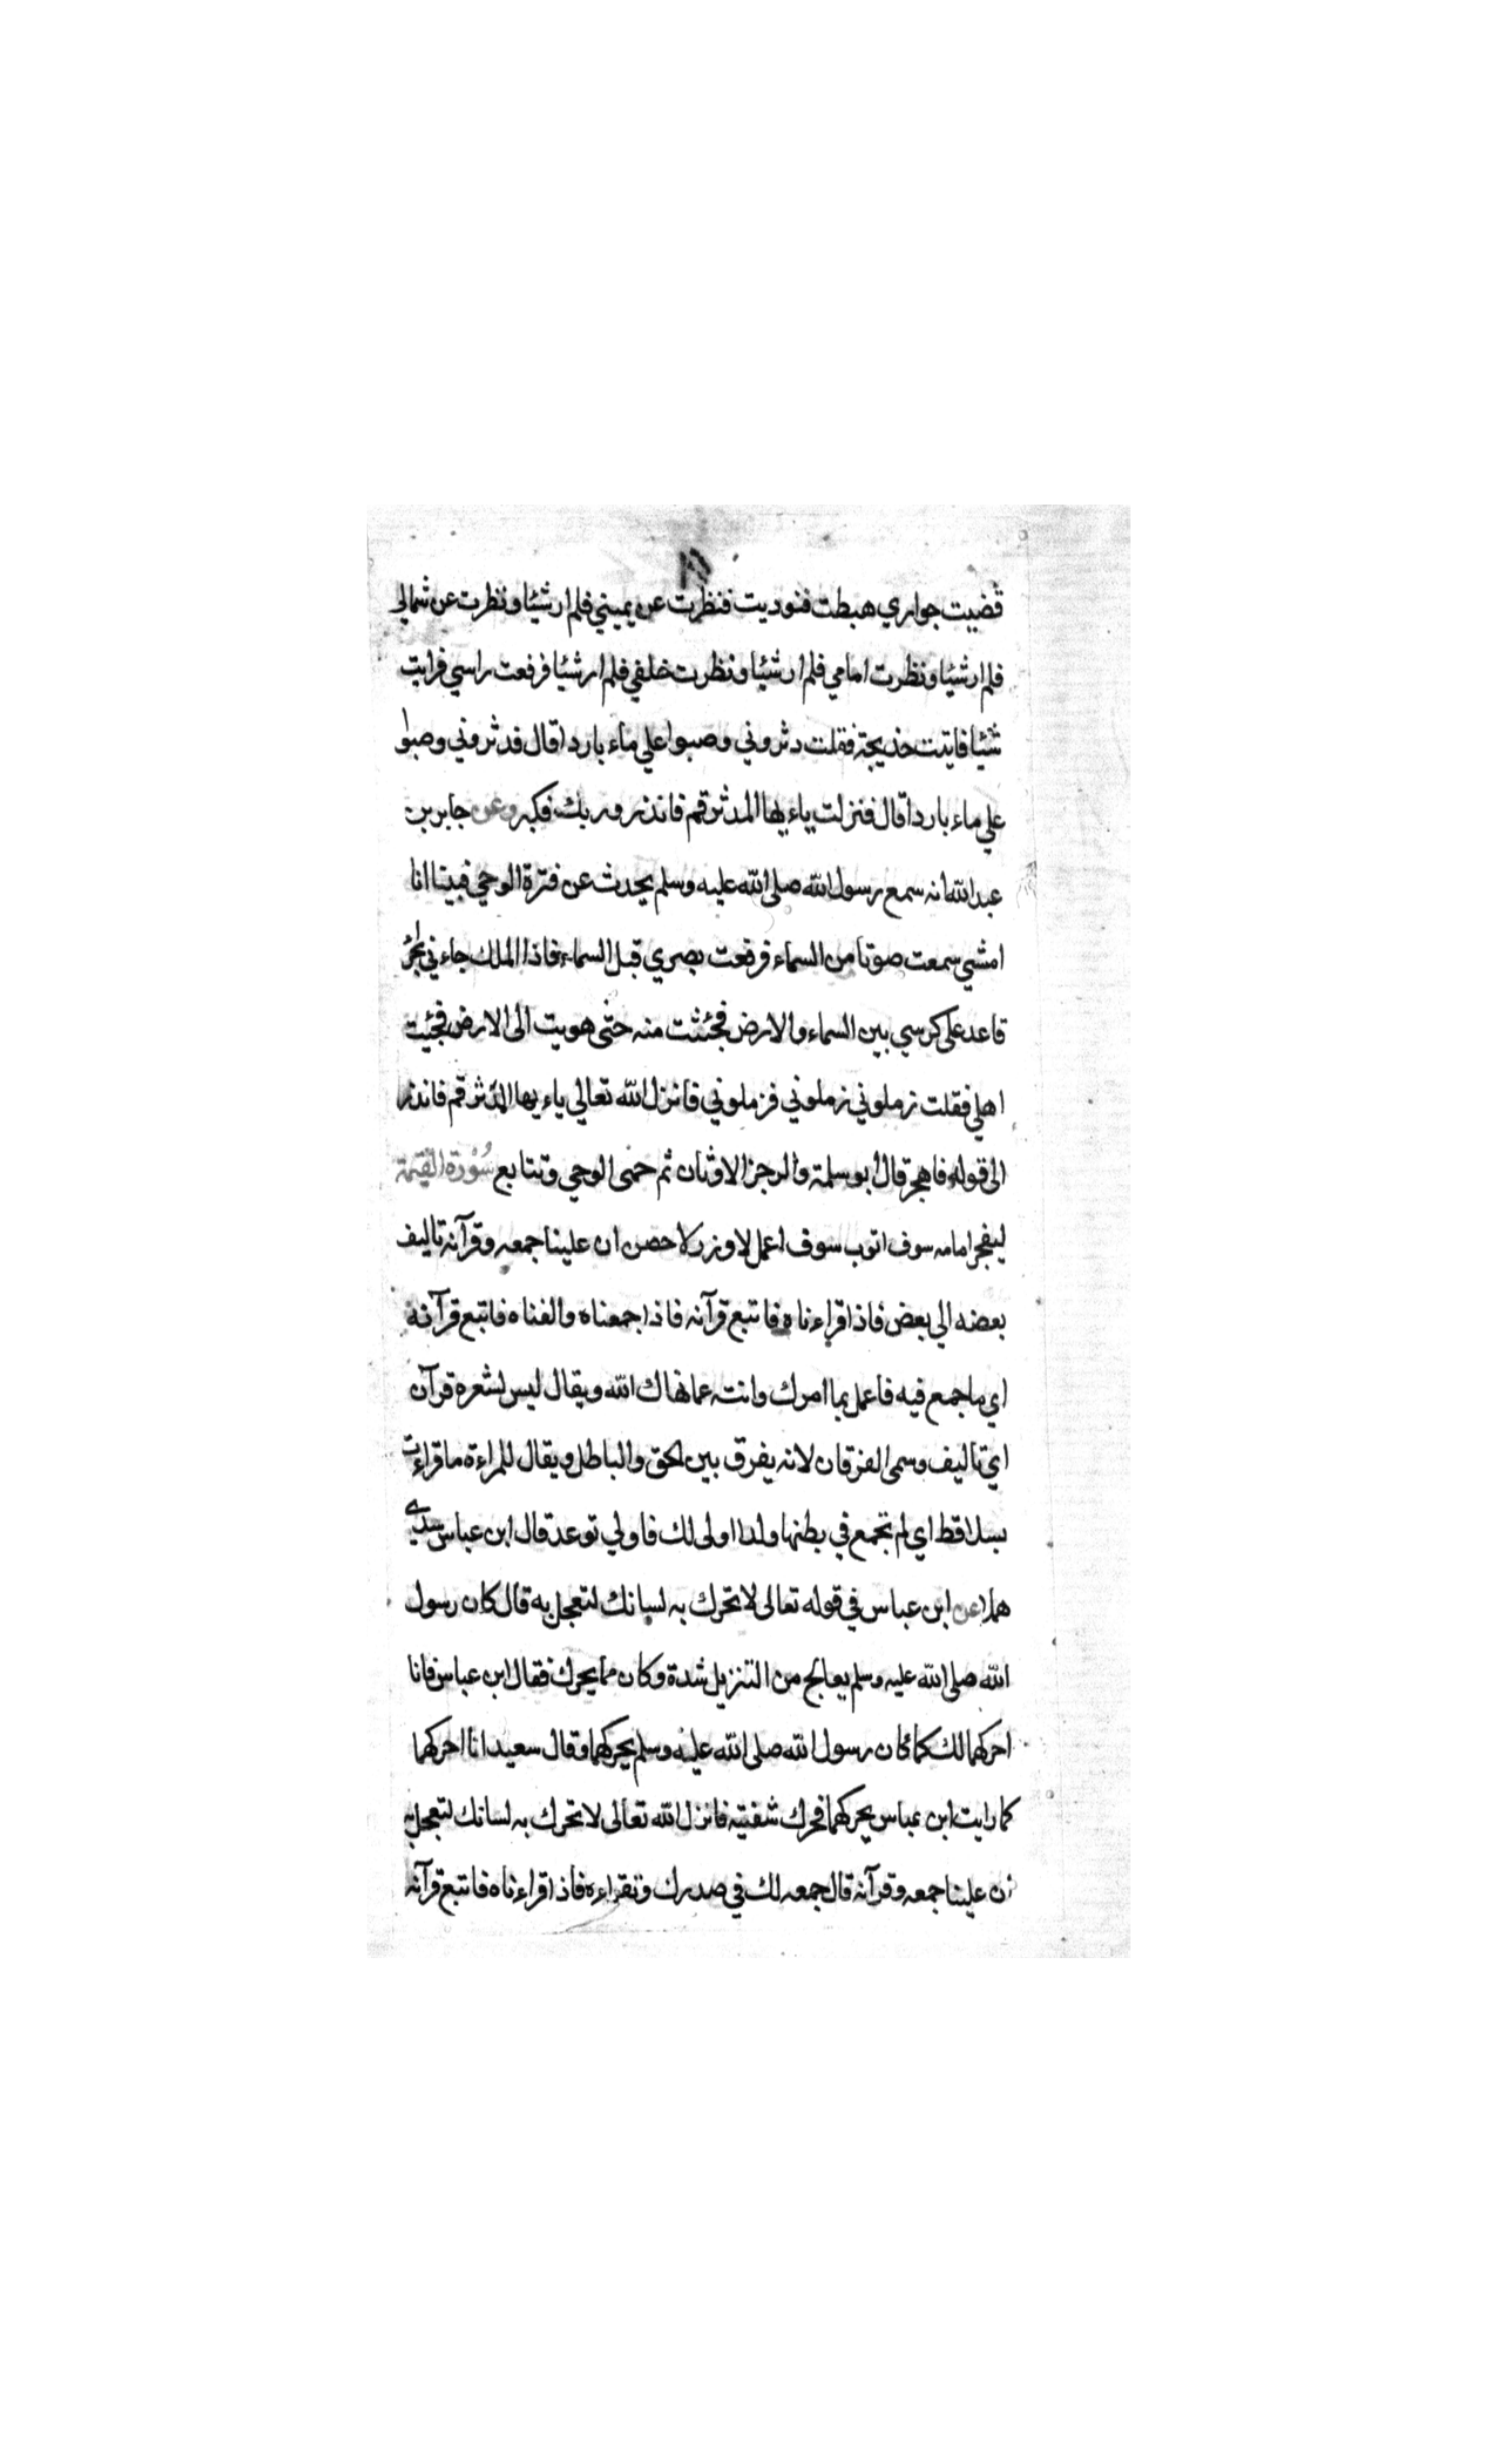 قضيت جواري هبطت فنوديت فنظرت عن يميني فلم ار شيئا ونظرت عن شمالي
فلم ار شيئا ونظرت امامي فلم ار شيئا ونظرت خلفي فلم ار شيئا فرفعت راسي فرايت
شيئا فاتيت خديجة فقلت دثروني وصبوا علي ماء باردا قال فدثروني وصبوا
علي ماء باردا قال فنزلت ياءيها المدثر قم فانذر وربك فكبر وعن جابر بن
عبد الله انه سمع رسول الله صلى الله عليه وسلم يحدث عن فترة الوحي فبينا انا
امشي سمعت صوتا من السماء فرفعت بصري قبل السماء فاذا الملك جاءني بحراء
قاعد على كرسي بين السماء والارض فجئثت منه حتى هويت الى الارض فجئت
اهلي فقلت زملوني زملوني فزملوني فانزل الله تعالي ياءيها المدثر قم فانذر
الى قوله فاهجر قال ابو سلمة والرجز الاوثان ثم حمى الوحي وتتابع سورة القيمة
ليفجر امامه سوف اتوب سوف اعمل لا وزر لا حصن ان علينا جمعه وقرآنه تاليف
بعضه الي بعض فاذا قراءناه فاتبع قرآنه فاذا جمعناه والفناه فاتبع قرآنه
اي ما جمع فيه فاعمل بما امرك وانته عما نهاك الله ويقال ليس لشعره قرآن
اي تاليف وسمى الفرقان لانه يفرق بين الحق والباطل ويقال للمراءة ما قراءت
بسلا قط اي لم تجمع في بطنها ولدا اولى لك فاولي توعد قال ابن عباس سدي
هملا عن ابن عباس في قوله تعالى لا تحرك به لسانك لتعجل به قال كان رسول
الله صلى الله عليه وسلم يعالج من التنزيل شدة وكان مما يحرك فقال ابن عباس فانا
احركهما لك كما كان رسول الله صلى الله عليه وسلم يحركهما وقال سعيد انا احركهما
كما رايت ابن عباس يحركهما فحرك شفتيه فانزل الله تعالى لا تحرك به لسانك لتعجل به
ان علينا جمعه وقرآنه قال جمعه لك في صدرك وتقراءه فاذا قراءناه فاتبع قرآنه